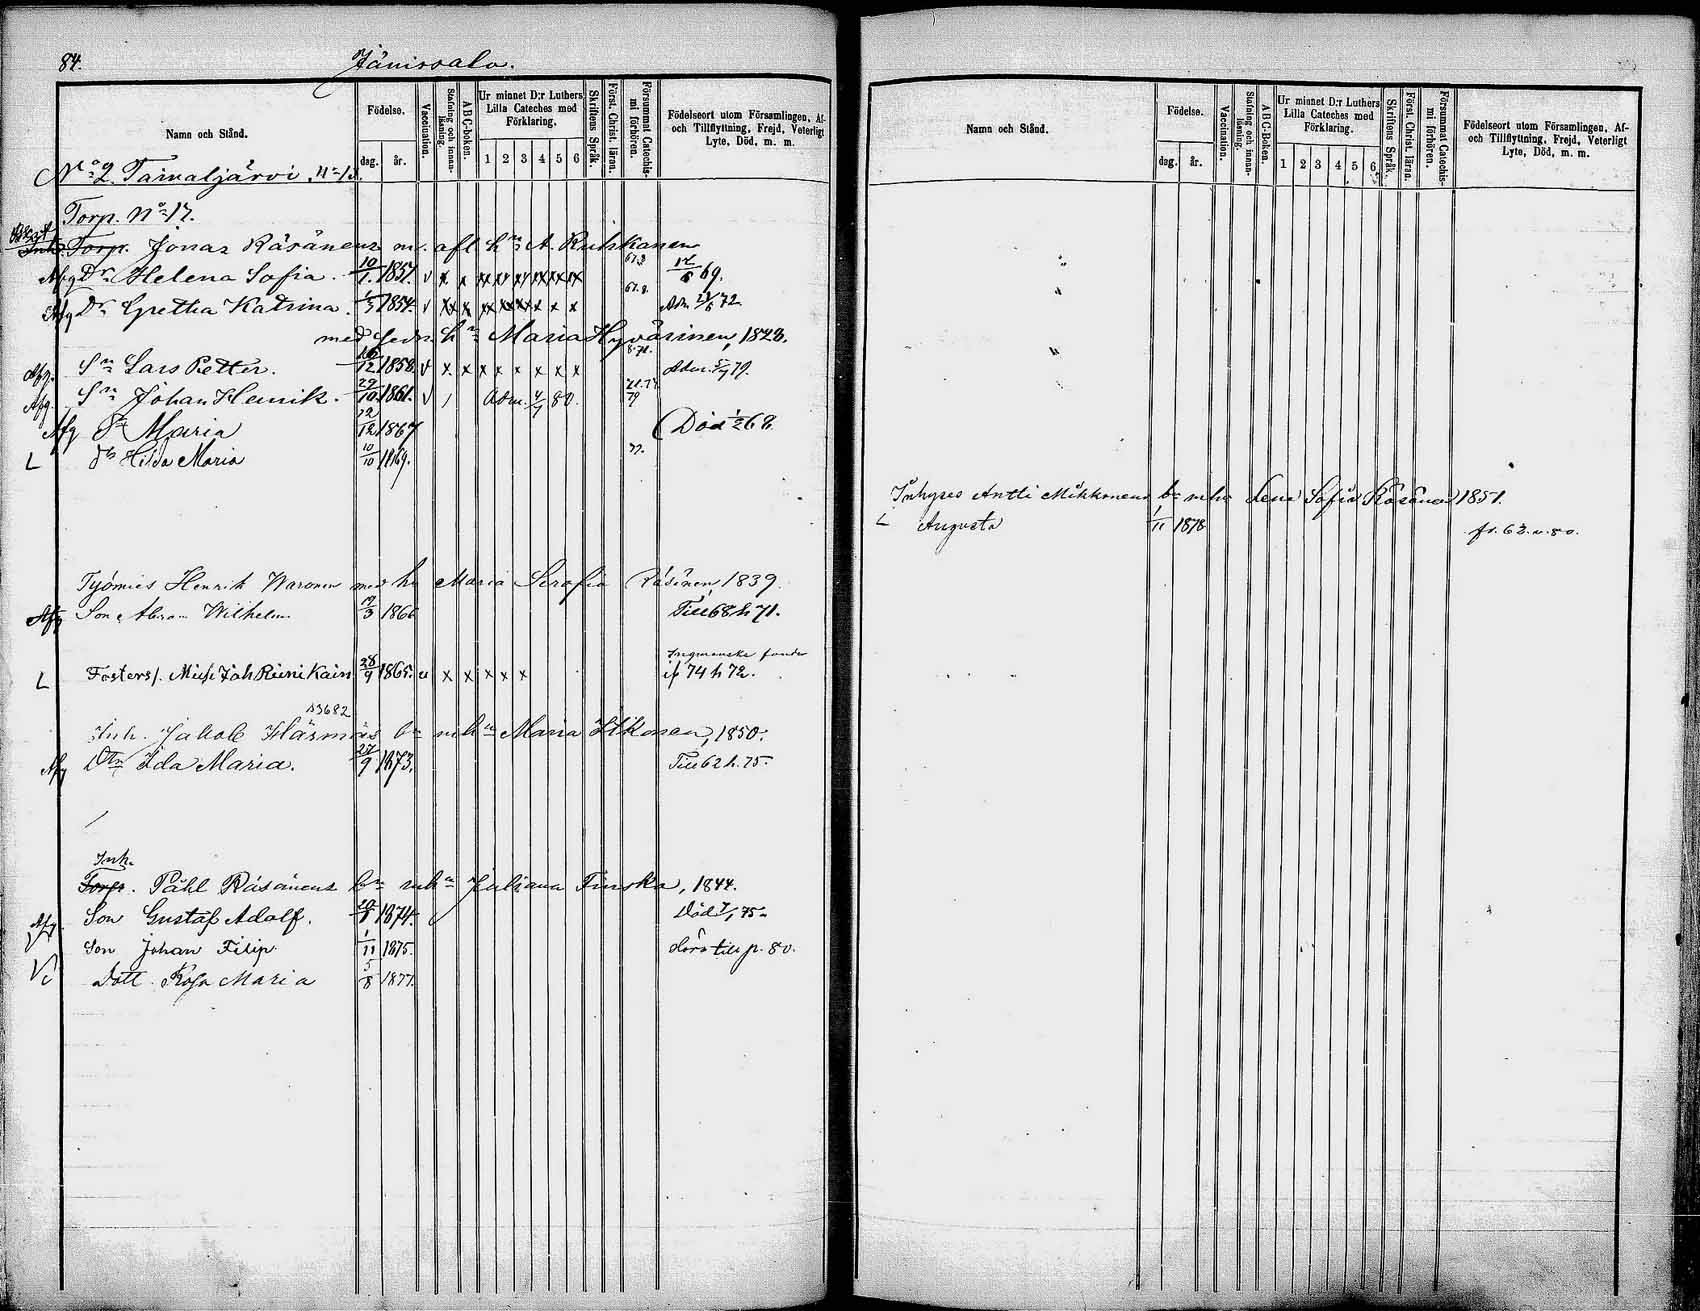 84.
Jänissalo.
Namn och Stånd.
Födelse.
dag. år.
Vaccination.
Stafning och innanläsning.
ABC-boken.
Ur minnet D:r Luthers Lilla Cateches med Förklaring.
1 2 3 4 5 6
Skriftens Språk.
Först. Christ. läran.
Försummat Catechismi förhören.
Födelseort utom Församlingen, Af- och Tillflyttning, Frejd, Veterligt Lyte, Död, m. m.
No 2. Taivaljärvi, No 13.
Torp. No 17.
Torp. Jonas Räsänens m. afl. hu A. Rutskanen
Afg Dr Helena Sofia. 10/1. 1851. v x x 67.8 12/6 69.
Afg Dr Gretha Katrina. 1854. v 67.8. Adm. 72
med sedn. hu Maria Hyvärinen, 1828.
Afg. Sn Lars Petter. 16/12 1858 v x x x x x x x x 8.71. Adm. 79.
Afg. Sn Johan Henrik. 29/10. 1861. v Adm. 4/7 80. 79
Afg Dr Maria 12/12 1867 Död 1/2 68.
L Dr Hilda Maria 10/10 1869. 77.
Työmies Henrik Waronen med hu Maria Serafia Räsänen, 1839.
Afg Son Abram Wilhelm 19/3 1866 Till 68 h 71.
L Fosters/. Mich Joh Reinikain 28/9 1865. v x x x x x if 74 h 72.
s3682
Inh. Jakob Härmäs bn mhu Maria Itkonen, 1850.
Afg Dtr Ida Maria. 27/9 1873. Till 62 h. 75.
Inh.
Torp. Påhl Räsänens bn mhu Juliana Finska, 1844.
Afg. Son Gustaf Adolf. 1874. Död 7/1 75.
Son Johan Filip 1/11 1875. till p. 80.
Dott. Rosa Maria 5/8 1877.
Namn och Stånd.
Födelse.
dag. år.
Vaccination.
Stafning och innanläsning.
ABC-boken.
Ur minnet D:r Luthers Lilla Cateches med Förklaring.
1 2 3 4 5 6
Skriftens Språk.
Först. Christ. läran.
Försummat Catechismi förhören.
Födelseort utom Församlingen, Af- och Tillflyttning, Frejd, Veterligt Lyte, Död, m. m.
Inhyses Antti Mikkonens bn mhu Lena Sofia Räsänen 1851.
L Augusta 1/11 1878 fr. 63. v. 80.